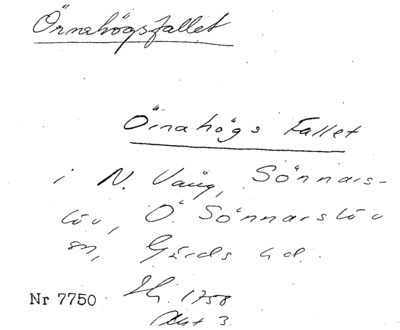 Örnahögsfallet
Örnahögs Fallet
i N. Vång, Sönnars-
löv, Ö. Sönnarslöv
sn, Gärds hd.
Nr 7750 1758
Akt 3